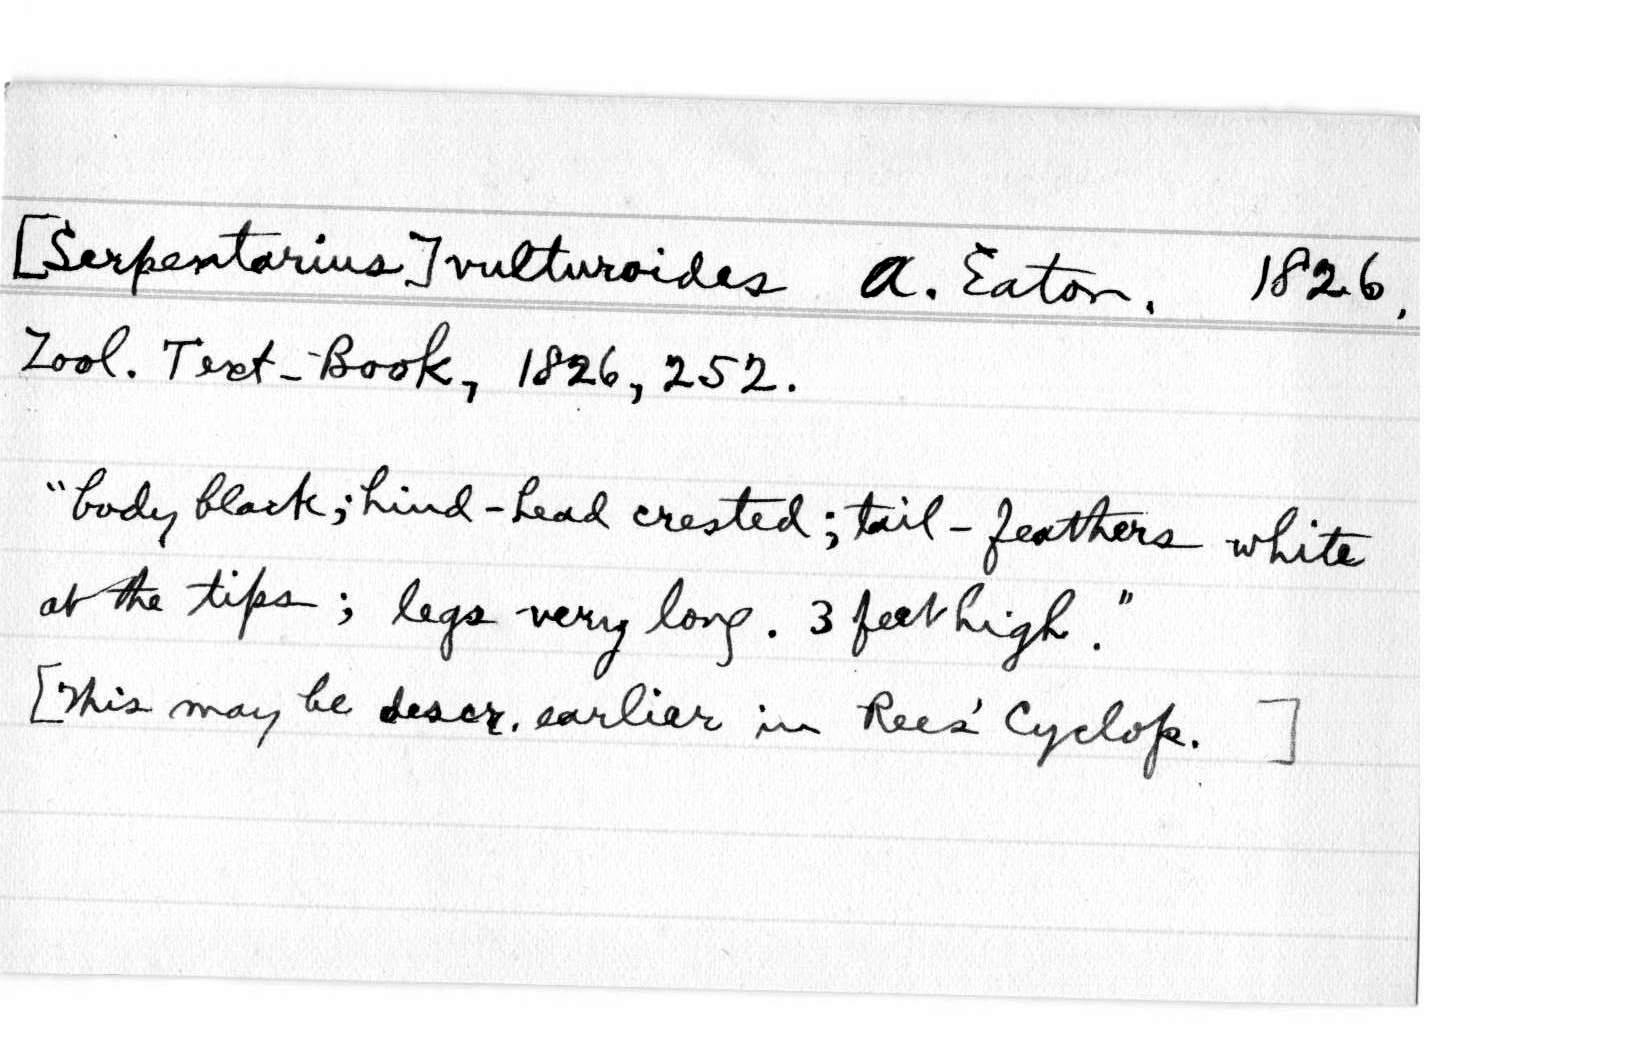 [Serpentarius] vulturoides A. Eaton. 1826.
Zool. Text-Book, 1826, 252.
"body black; hind-head crested; tail-feathers white
at the tips; legs very long. 3 feet high."
[This may be descr. earlier in Rees' Cyclop. ]